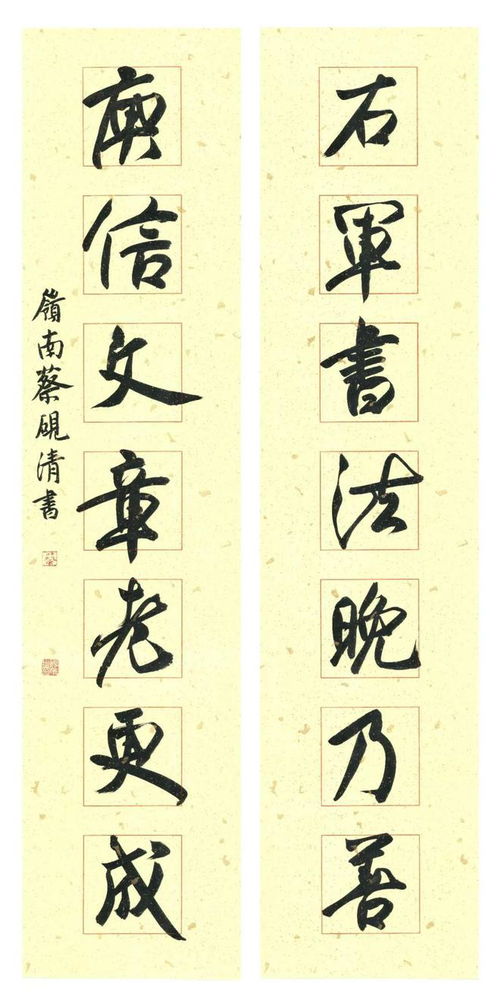 右軍書法晚乃善
庾信文章老更成
嶺南蔡硯清書